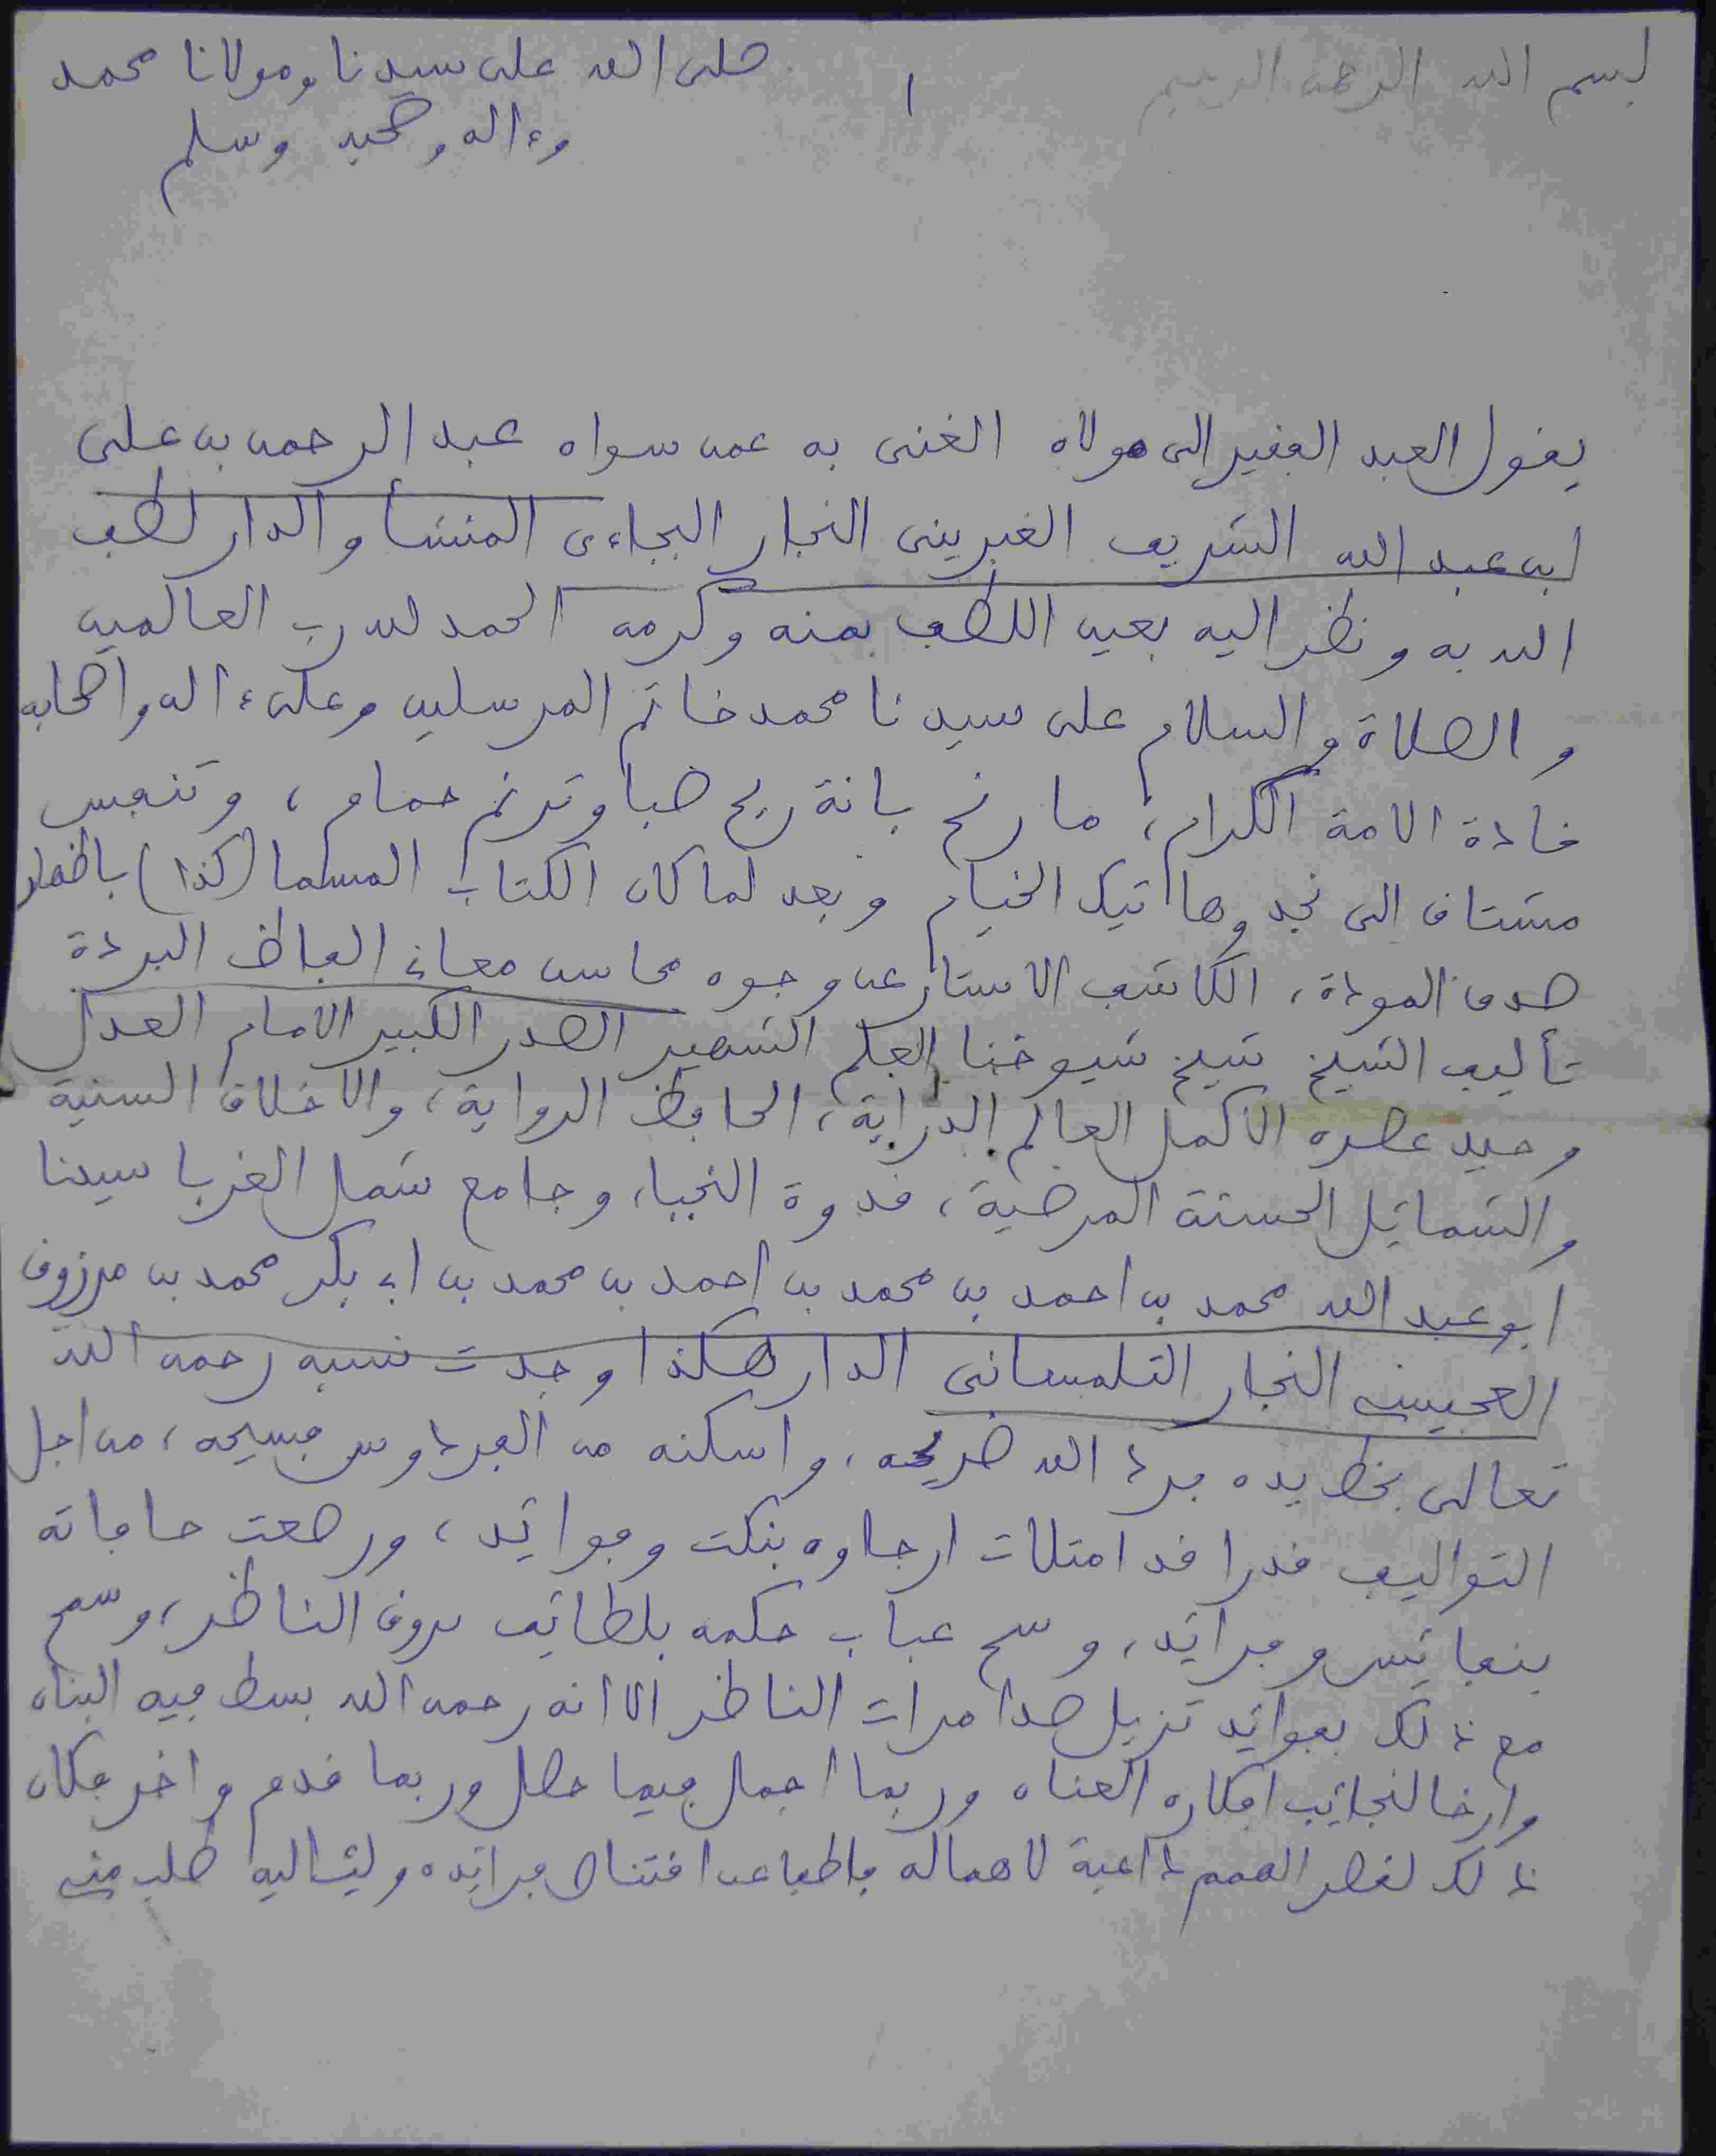 بسم الله الرحمن الرحيم
١
صلى الله على سيدنا ومولانا محمد
وءاله وصحبه وسلم
يقول العبد الفقير الى مولاه الغنى به عمن سواه عبد الرحمن بن على
ابن عبد الله الشريف الغبرينى النجار البجاءى المنشأ والدار لطف
الله به ونظر اليه بعين اللطف بمنه وكرمه الحمد لله رب العالمين
والصلاة والسلام على سيدنا محمد خاتم المرسلين وعلىءاله واصحابه
قادة الامة الكرام، ما رنح بانة ريح صبا وترنم حمام، وتنفس
مشتاق الى نجد وهاتيك الخيام وبعد لما كان الكتاب المسما (كذا) باظهار
صدق المودة، الكاشف الاستار عن وجوه محاسن معانى الفاظ البردة
تأليف الشيخ شيخ شيوخنا العلم الشهير الصدر الكبير الامام العدل
وحيد عصره الاكمل العالم الدراية، الحافظ الرواية، والاخلاق السنية
والشمائل الحسنة المرضية، قدوة النجباء وجامع شمل الغربا سيدنا
ابو عبد الله محمد بن احمد بن محمد بن احمد بن محمد بن ابى بكر محمد بن مرزوق
العجيسى النجار التلمسانى الدار هكذا وجدت نسبه رحمه الله
تعالى بخط يده برد الله ضريحه، واسكنه من الفردوس فسيحه، من اجل
التواليف قدرا قد امتلات ارجاوه بنكت وفوائد، ورصعت حافاته
بنفائس وفرائد، وسح عباب حكمه بلطائف تروق الناظر، وسمح
مع ذلك بفوائد تزيل صدا مرات الناظر الا انه رحمه الله بسط فيه البناه
وارخا لنجائب افكاره العناه وربما اجمل فيما حصل وربما قدم واخر فكان
ذلك لقصر الهمم داعية لاهماله فاطبا عن اقتناص فرائده اليه طلب منى